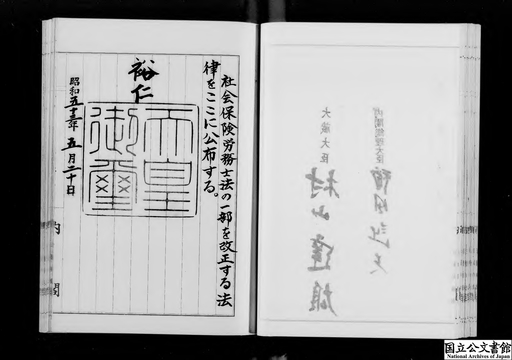 社会保険労務士法の一部を改正する法
律をここに公布する。
裕仁
天皇
御璽
昭和五十三年五月二十日
内閣
大蔵大臣
村山達雄
国立公文書館
National Archives of Japan